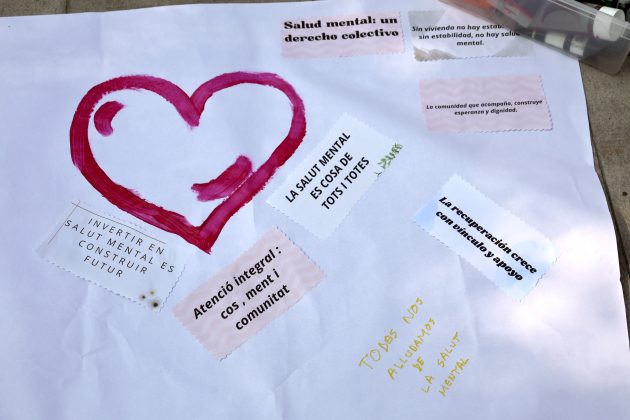 Salud mental: un
derecho colectivo
Sin viviendo no hay estabilidad,
sin estabilidad, no hay salud
mental.
La comunidad que acompaña, construye
esperanza y dignidad.
LA SALUT MENTAL
ES COSA DE
TOTS I TOTES
La recuperación crece
con vínculo y apoyo
INVERTIR EN
SALUT MENTAL ES
CONSTRUIR
FUTUR
Atenció integral :
cos , ment i
comunitat
TODES NOS
ALLUDAMOS
DE
LA SALUT
MENTAL